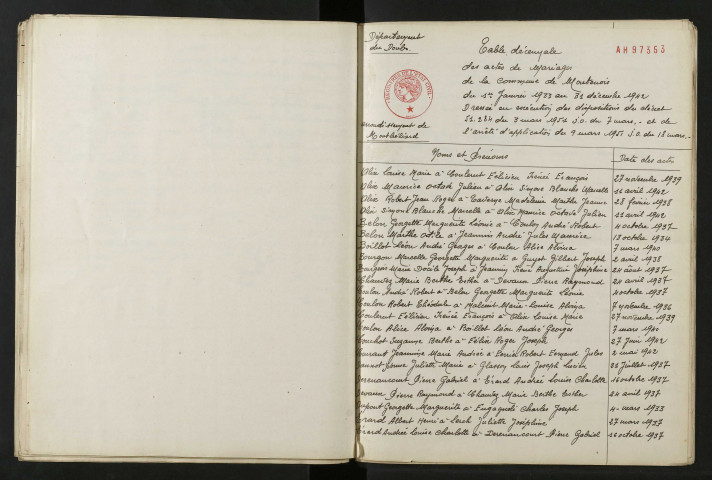 Département
du Doubs
Table décennale
AH97353
des actes de mariages
de la Commune de Montenois
du 1er Janvier 1933 au 31 décembre 1942
Dressé en exécution des dispositions du décret
51.284 du 3 mars 1951 J.O. du 7 mars. - et de
l'arrêté d'application du 9 mars 1951 J.O. du 18 mars. -
arrondissement de
Montbéliard
Noms et Prénoms
Date des actes
Louise Marie à Coulerut Félicien Irénée François 27 novembre 1939
Maurice Octave Julien à Simone Blanche Marcelle 11 avril 1942
Robert Jean Roger à Madeleine Marthe Jeanne 28 février 1938
Simone Blanche Marcelle à Maurice Octave Julien 11 avril 1942
Belon Georgette Marguerite Léonie à Coulon André Robert 4 octobre 1937
Belon Marthe à Jeannin André Jules Maurice 13 octobre 1934
Boillot Léon André Georges à Coulon Alice Aloïsa 7 mars 1940
Bourgon Marcelle Georgette Marguerite à Guyot Gilbert Joseph 2 avril 1938
Marie Joseph à Jeannin Augustine Joséphine 24 août 1937
Marie Berthe Esther à Devaux Pierre Raymond 24 avril 1937
Coulon André Robert à Belon Georgette Marguerite Léonie 4 octobre 1937
Coulon Robert Théodule à Marie Louise Aloïsa 7 novembre 1936
Coulerut Félicien Irénée François à Louise Marie 27 novembre 1939
Coulon Alice Aloïsa à Boillot Léon André Georges 7 mars 1940
Suzanne Berthe à Félix Roger Joseph 27 Juin 1942
Jeannine Marie Andrée à Robert Fernand Jules 2 mai 1942
Juliette Marie à Louis Joseph Lucien 28 Juillet 1937
Derenancourt Pierre Gabriel à Erard Andrée Louise Charlotte 16 octobre 1937
Devaux Pierre Raymond à Marie Berthe Esther 24 avril 1937
Dupont Georgette Marguerite à Charles Joseph 4 mars 1933
Erard Albert Henri à Lerch Juliette Joséphine 27 mars 1937
Erard Andrée Louise Charlotte à Derenancourt Pierre Gabriel 16 octobre 1937